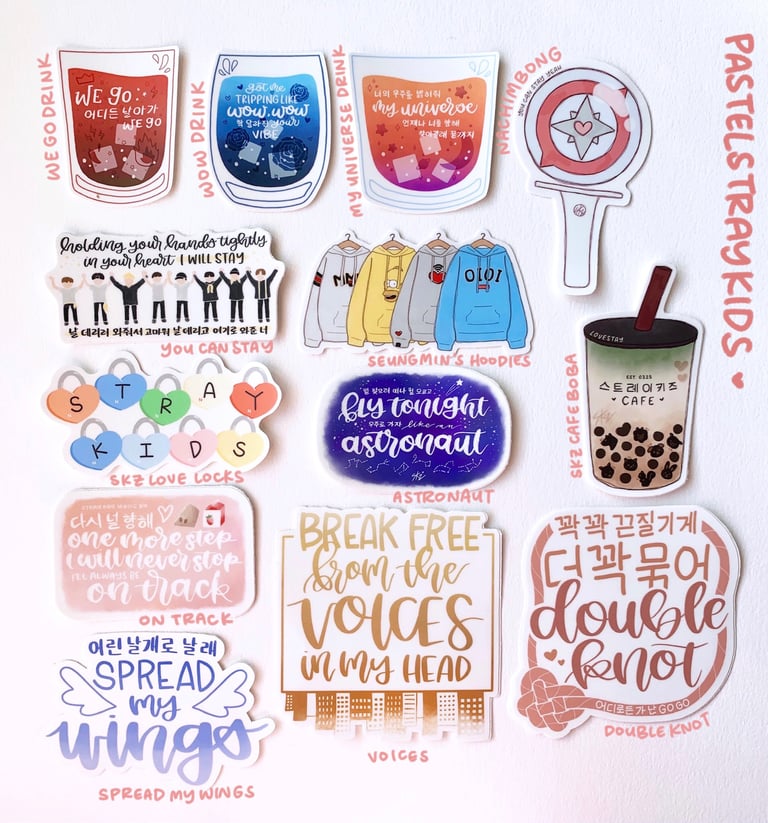 WE GO DRINK
WE GO:
어디든 날아가
WE GO
WOW DRINK
got me
TRIPPING LIKE
WOW, WOW
확 달라진 your
VIBE
MY UNIVERSE DRINK
너의 우주를 밝히줘
my universe
언제나 너를 향해
NACHIMBONG
YOU CAN STAY YEAH
PASTELSTRAYKIDS
holding your hands tightly
in your heart I WILL STAY
날 데리러 와줘서 고마워 날 데리고 여기로 와준 너
YOU CAN STAY
OIOI
SEUNGMIN'S HOODIES
S T R A Y
K I D S
SKZ LOVE LOCKS
fly tonight
우주로 가자 like an
astronaut
ASTRONAUT
LOVESTAY
EST. 0325
스트레이키즈
CAFE
SKZ CAFE BOBA
다시 널 향해
one more step
I will never stop
I'LL ALWAYS BE
on track
ON TRACK
BREAK FREE
from the
VOICES
in my HEAD
VOICES
꽉꽉 끈질기게
더 꽉 묶어
double
knot
어디로든 가 난 GO GO
DOUBLE KNOT
어린 날개로 날래
SPREAD
my
wings
SPREAD MY WINGS